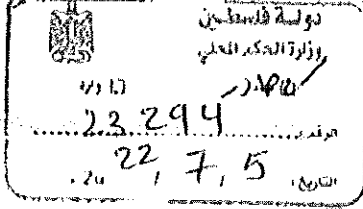 دولة فلسطين
وزارة الحكم المحلي
صادر
الرقم: 23294
التاريخ: 5 / 7 / 2022